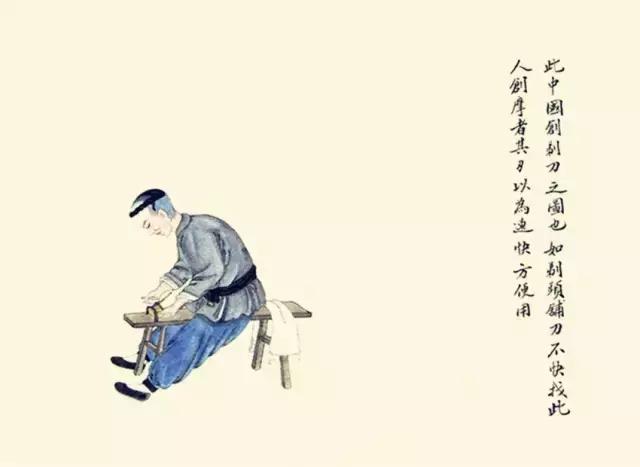 此中國創剃刀之圖也如剃頭鋪刀不快找此
人創摩者其刀以為速快方便用